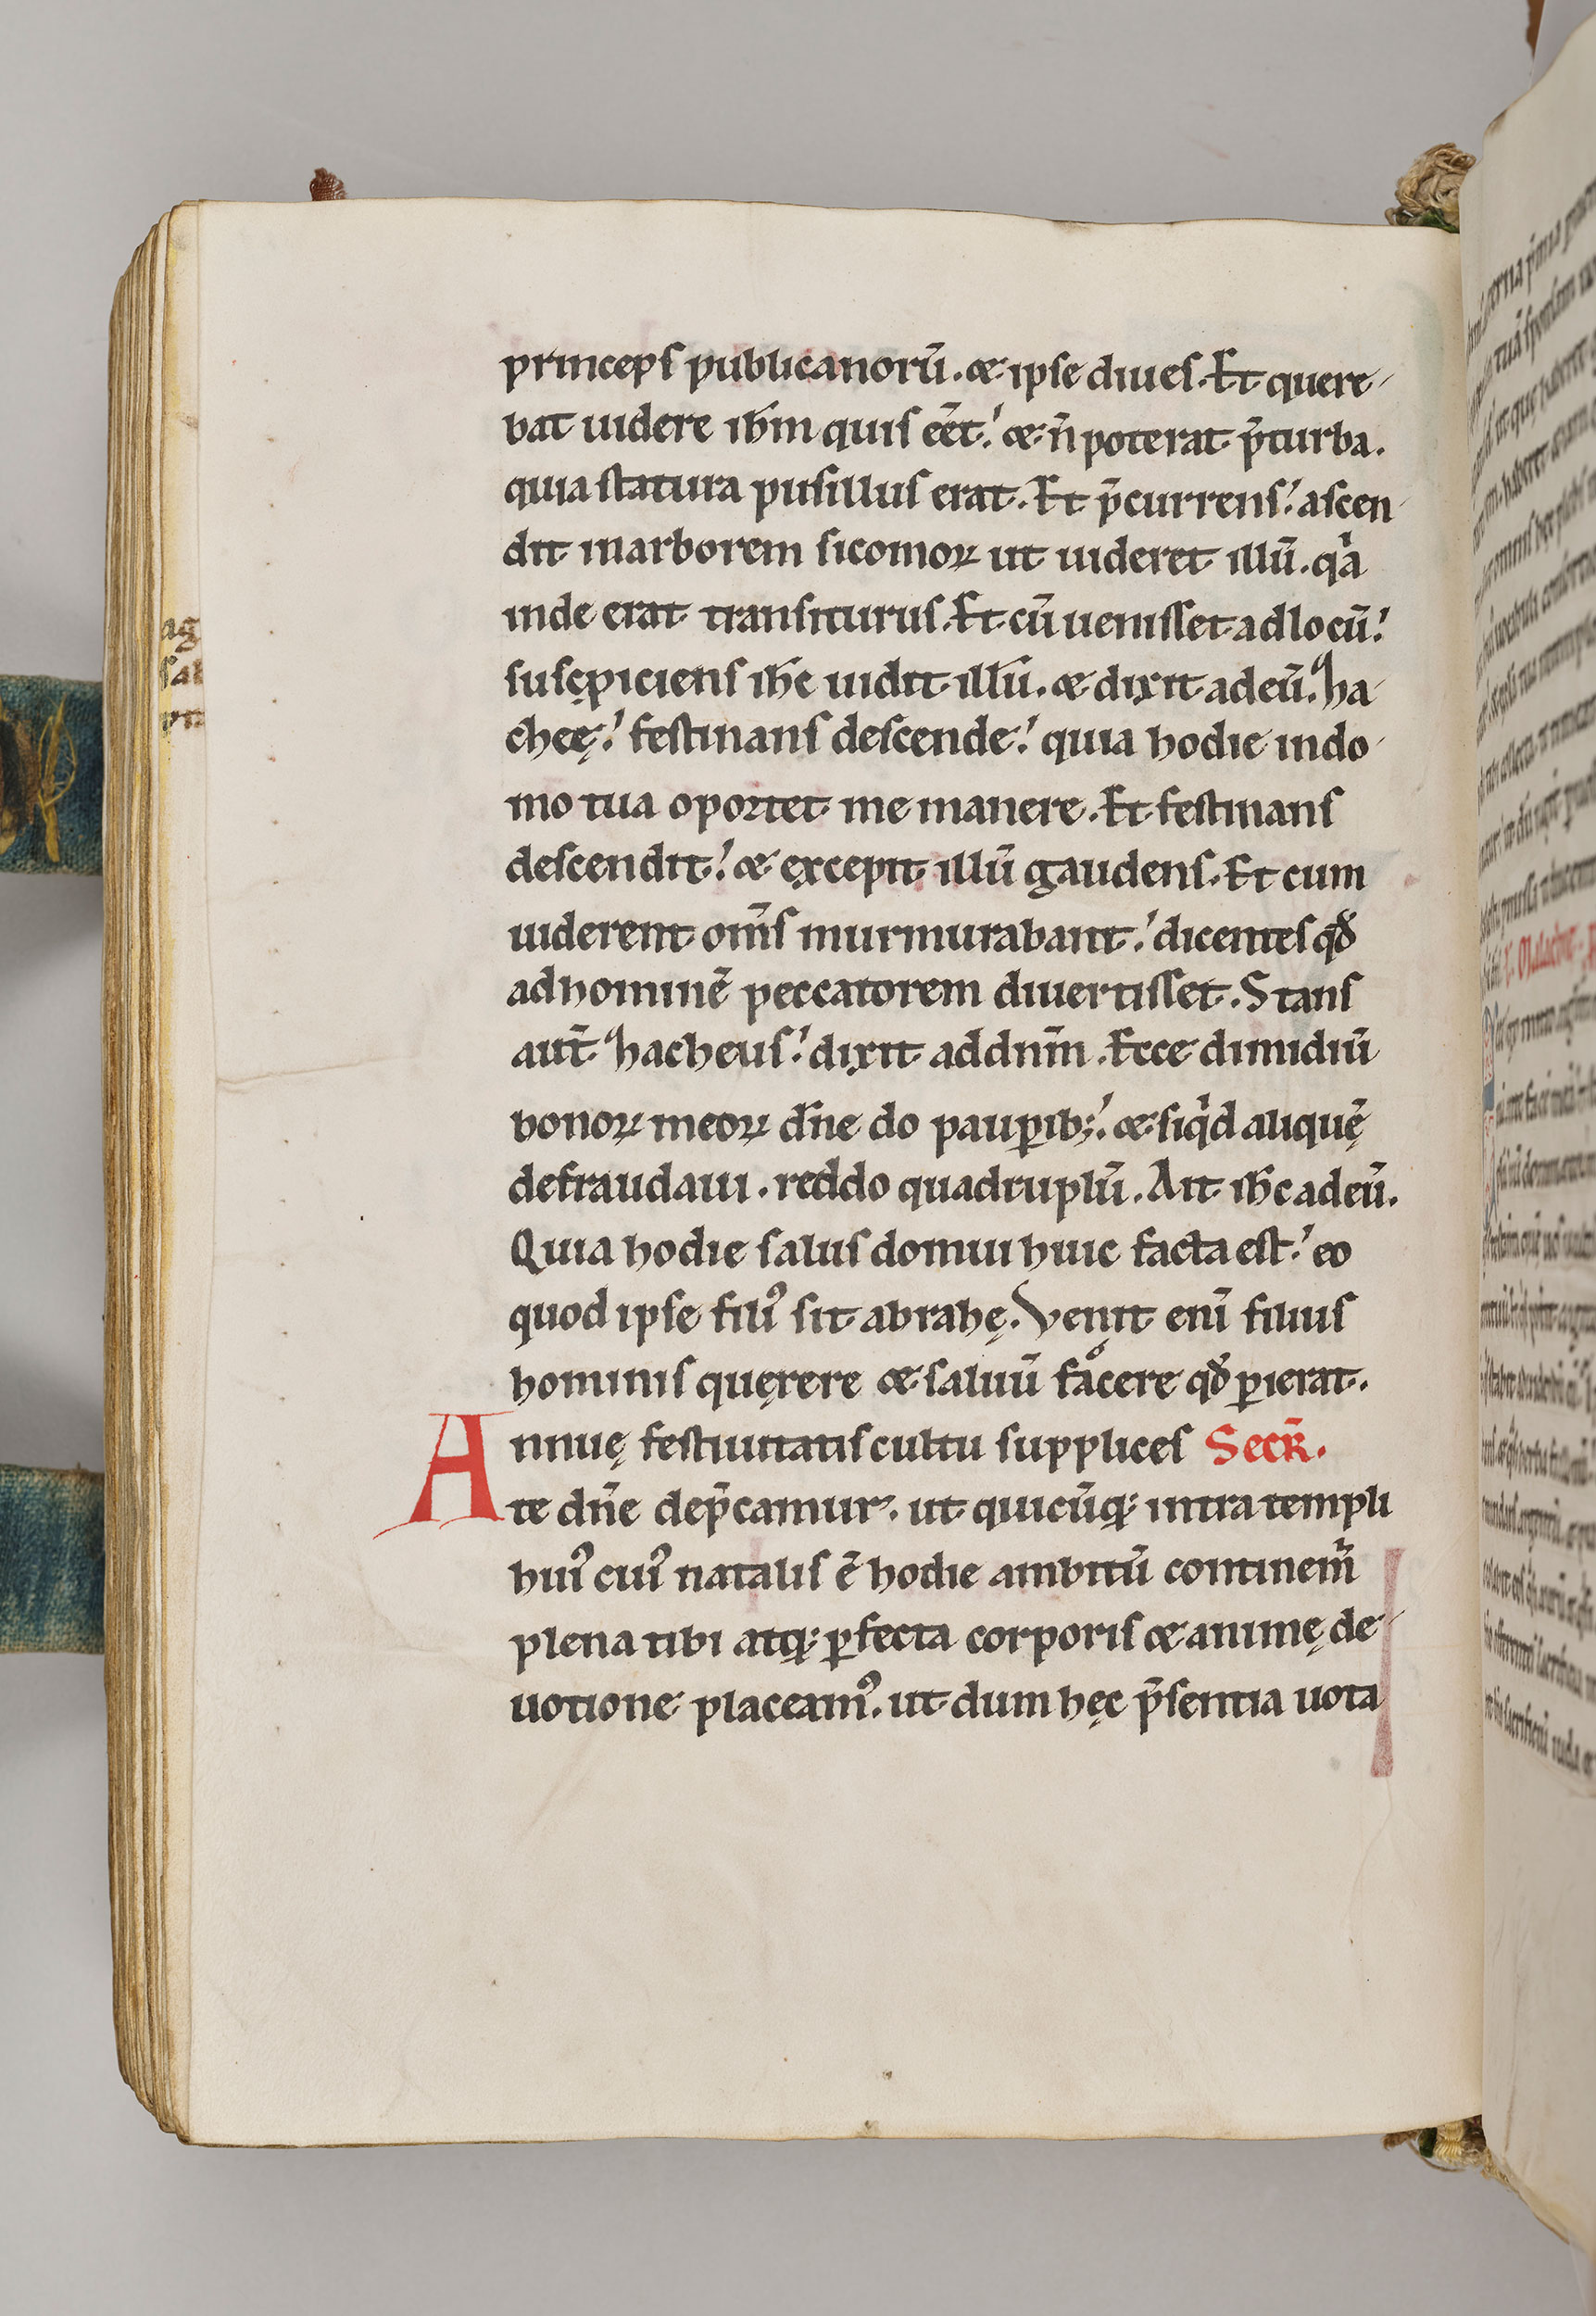 princeps publicanorū. & ipse diues. Et quere
bat uidere ihm̄ quis eēt. & n̄ poterat p̄ turba.
quia statura pusillus erat. Et p̄currens. ascen
dit inarborem sicomoꝝ ut uideret illū. qͥa
inde erat transiturus. Et cū uenisset adlocū.
suscpiciens ihc̄ uidit illū. & dixit adeū. ha
cheę. festinans descende. quia hodie indo
mo tua oportet me manere. Et festinans
descendit. & excepit illū gaudens. Et cum
uiderent om̄s murmurabant. dicentes qđ
adhominē peccatorem diuertisset. Stans
aut̄ hacheus. dixit addnm̄. Ecce dimidiū
bonoꝝ meoꝝ dn̄e do pauꝑib;. & siqͥd aliquē
defraudaui. reddo quadruplū. Ait ihc̄ adeū.
Quia hodie salus domui huic facta est. eo
quod ipse filiꝰ sit abrahę. Venit enī filius
hominis quęrere & saluū facere qđ ꝑierat.
Annuę festiuitatis cultu supplices Secr̄.
te dn̄e dep̄camur. ut quicūq; intra templi
huiꝰ cuiꝰ natalis ē hodie ambitū continem̄
plena tibi atq; ꝑfecta corporis & animę de
uotione placeamꝰ. ut dum hęc p̄sentia uota